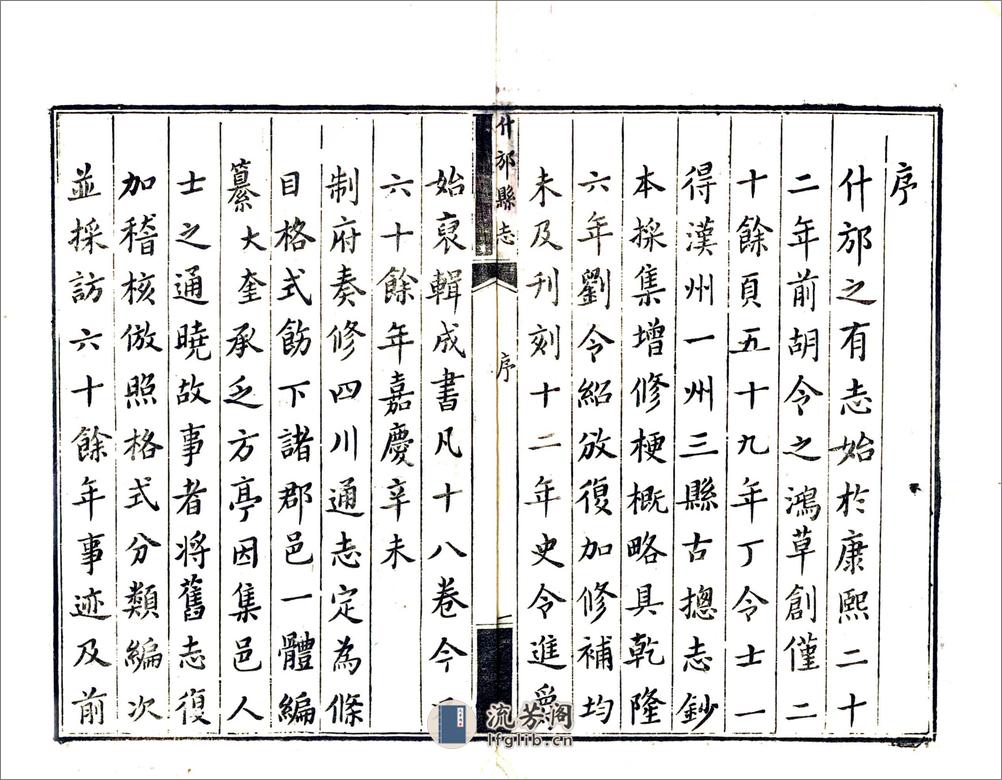 序
什邡之有志始於康熙二十
二年前胡令之鴻草創僅二
十餘頁五十九年丁令士一
得漢州一州三縣古摠志鈔
本採集增修梗概略具乾隆
六年劉令紹攽復加修補均
未及刊刻十二年史令進爵
什邡縣志
序
始裒輯成書凡十八卷今
六十餘年嘉慶辛未
制府奏修四川通志定為條
目格式飭下諸郡邑一體編
纂大奎承乏方亭因集邑人
士之通曉故事者將舊志復
加稽核倣照格式分類編次
並採訪六十餘年事迹及前
流芳阁
lfglib.cn